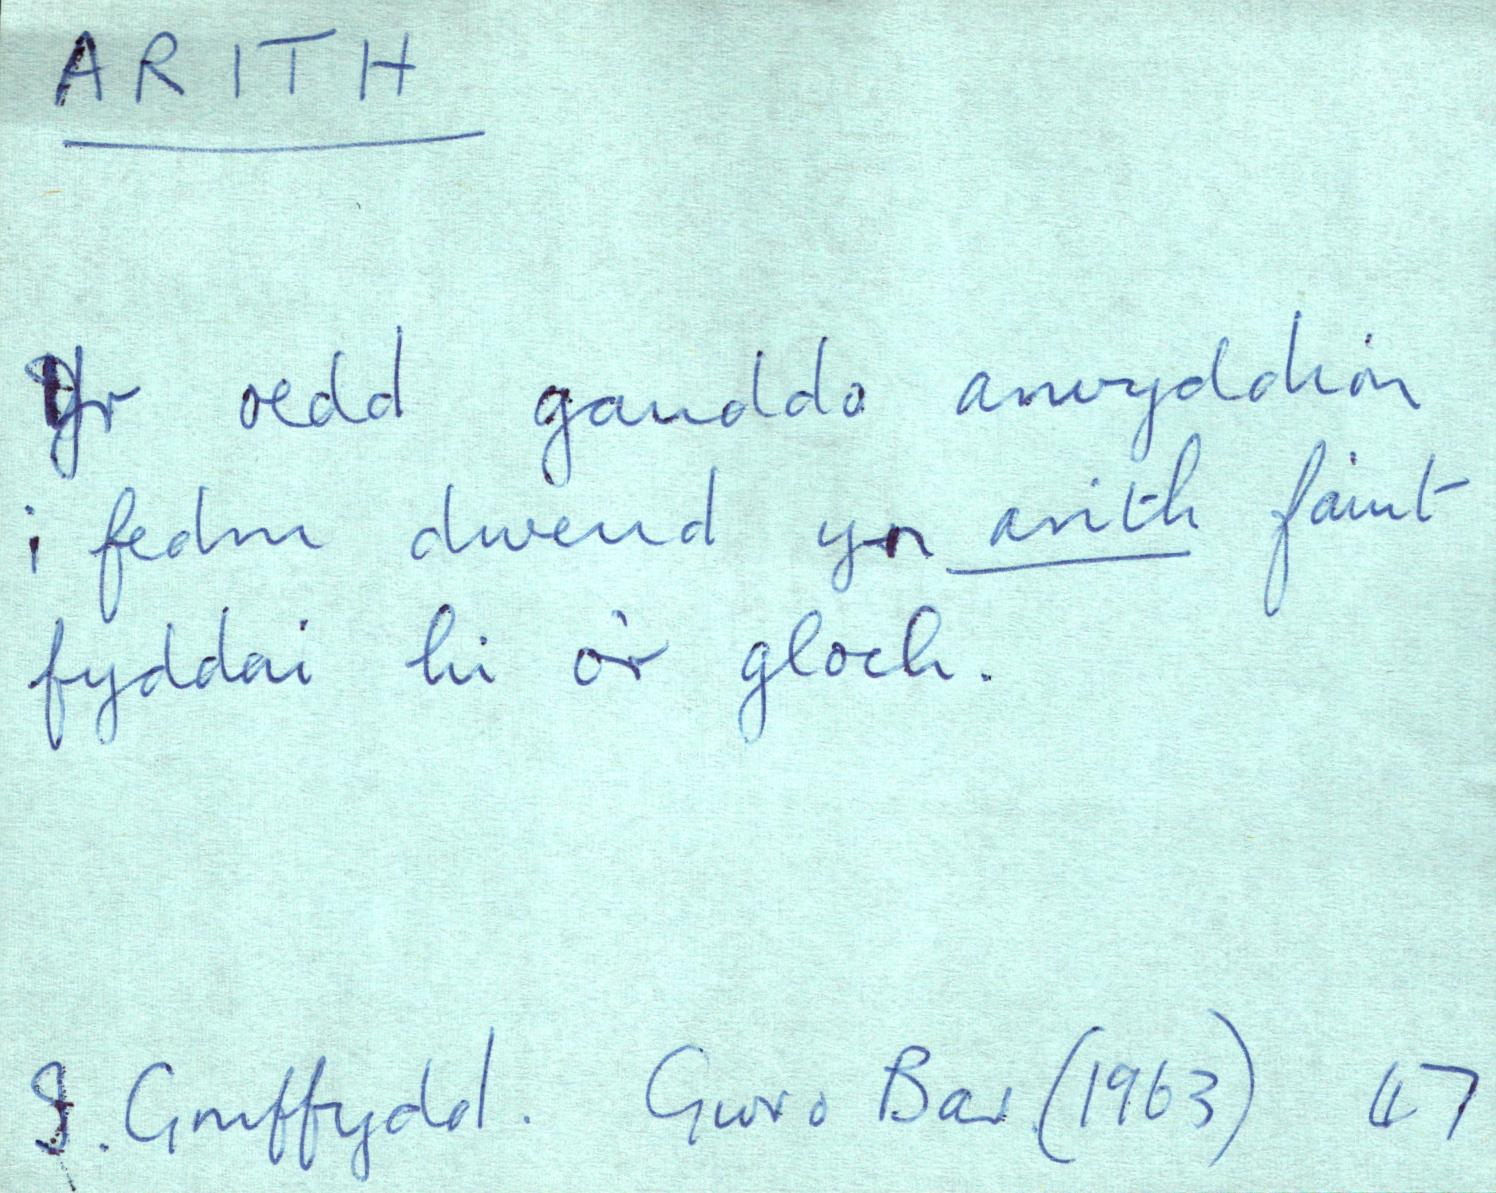 ARITH
Yr oedd ganddo arwyddion
i fedru dweud yn arith faint
fyddai hi o'r gloch.
I. Gruffydd. Gwro Bas (1963) 47